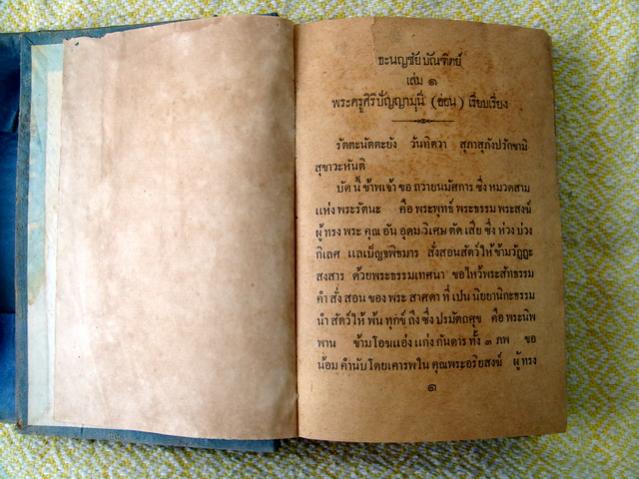 ธะนญชัยบัณฑิตย์
เล่ม ๑
พระครูศิริปัญญามุนี (อ่อน) เรียบเรียง
รัตตะนัตตะยัง วันทิตวา สุภาสุภังปรักขามิ
สุขาวะหันติ
บัด นี้ ข้าพเจ้า ขอ ถวายนมัศการ ซึ่ง หมวดสาม
แห่ง พระรัตนะ คือ พระพุทธ์ พระธรรม พระสงฆ์
ผู้ ทรง พระ คุณ อัน อุดม วิเศษ ตัด เสีย ซึ่ง ห่วง บ่วง
กิเลศ แลเบ็ญจพิธมาร สั่งสอนสัตว์ให้ข้ามวัฏฏะ
สงสาร ด้วยพระธรรมเทศนา ขอไหว้พระสัทธรรม
คำ สั่ง สอน ของ พระ สาศดา ที่ เปน นิยยานิกะธรรม
นำ สัตว์ให้ พ้น ทุกข์ ถึง ซึ่ง ปรมัตถศุข คือ พระนิพ
พาน ข้ามโอฆแอ่ง แก่ง กันดาร ทั้ง ๓ ภพ ขอ
น้อม คำนับ โดยเคารพใน คุณพระอริยสงฆ์ ผู้ ทรง
๑